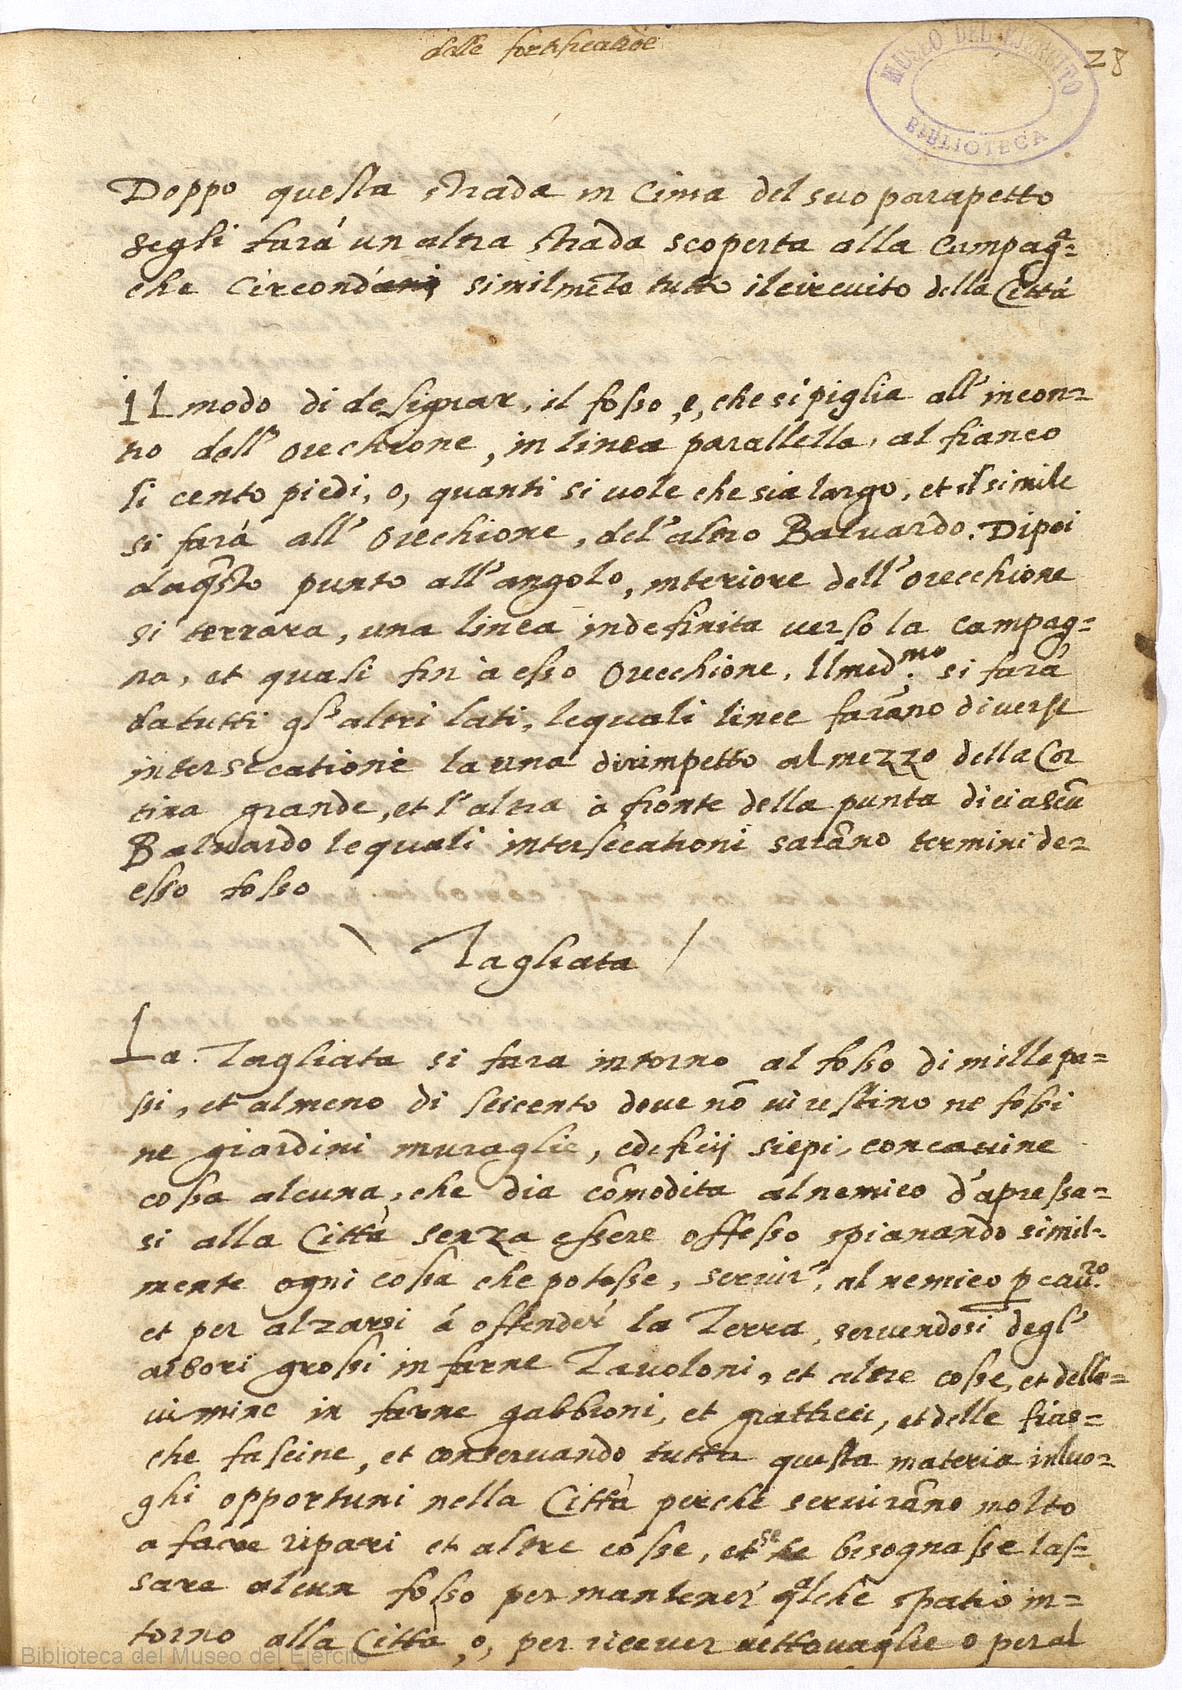 delle fortificatione
28
MUSEO DEL EJERCITO
BIBLIOTECA
Doppo questa strada in Cima del suo parapetto
segli fará un altra strada scoperta alla Campagᵃ=
che Circondá similmēto tutto il circuito della Cittá
Il modo di designar, il fosso, e, che si piglia all'incon=
tro dell'orechione, in linea parallella, al fianco
li cento piedi, o, quanti si uole che sia largo, et il simile
si fará all'orechione, del'altro Baluardo. Dipoi
daq̃sto punto all'angolo, interiore dell'orecchione
si terrara, una linea indefinita uerso la campag=
na, et quasi fin à esso Orecchione, Il medᵐᵒ. si fará
da tutti gl'altri lati, lequali linee farãno diuerse
intersecationi la una dirimpetto al mezzo della Cor
tina grande, et l'altra à fronte della punta di ciascũ
Baluardo lequali intersecationi sarãno termini de=
esso fosso
Tagliata
La Tagliata si fara intorno al fosso di mille pa=
ssi, et almeno di seicento doue nõ ui restino ne fossi
ne giardini muraglie, edificij siepi, concauine
cossa alcuna, che dia cõmodita al nemico d'apressa=
si alla Cittá senza essere offesso spianando simil=
mente ogni cossa che potesse, seruir', al nemico p cauʳᵒ.
et per alzarsi á offender' la Terra, seruendosi degl'
arbori grossi in farne Tauoloni, et altre cosse, et delle=
uimine in farne gabbioni, et gratticci, et delle fras=
che fascine, et conseruando tutta questa materia in luo=
ghi opportuni nella Cittá perche seruirãno molto
a farre ripari et altre cosse, et se besognasse las=
sare alcun fosso per mantener' qᵃlche spatio in=
torno alla Cittá, o, per riceuer uettouaglie o per al
Biblioteca del Museo del Ejército